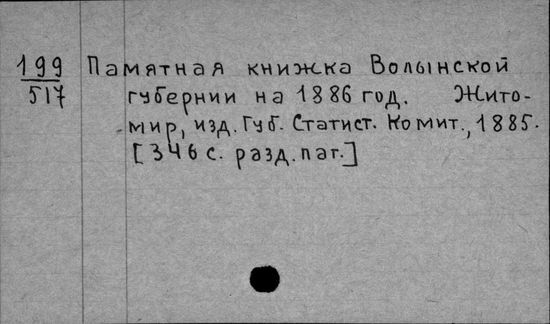 199 Памятная книжка Волынской
517 губернии на 1886 год. Жито-
мир, изд. Губ. Статист. Комит., 1885.
[346 с. разд. паг.]